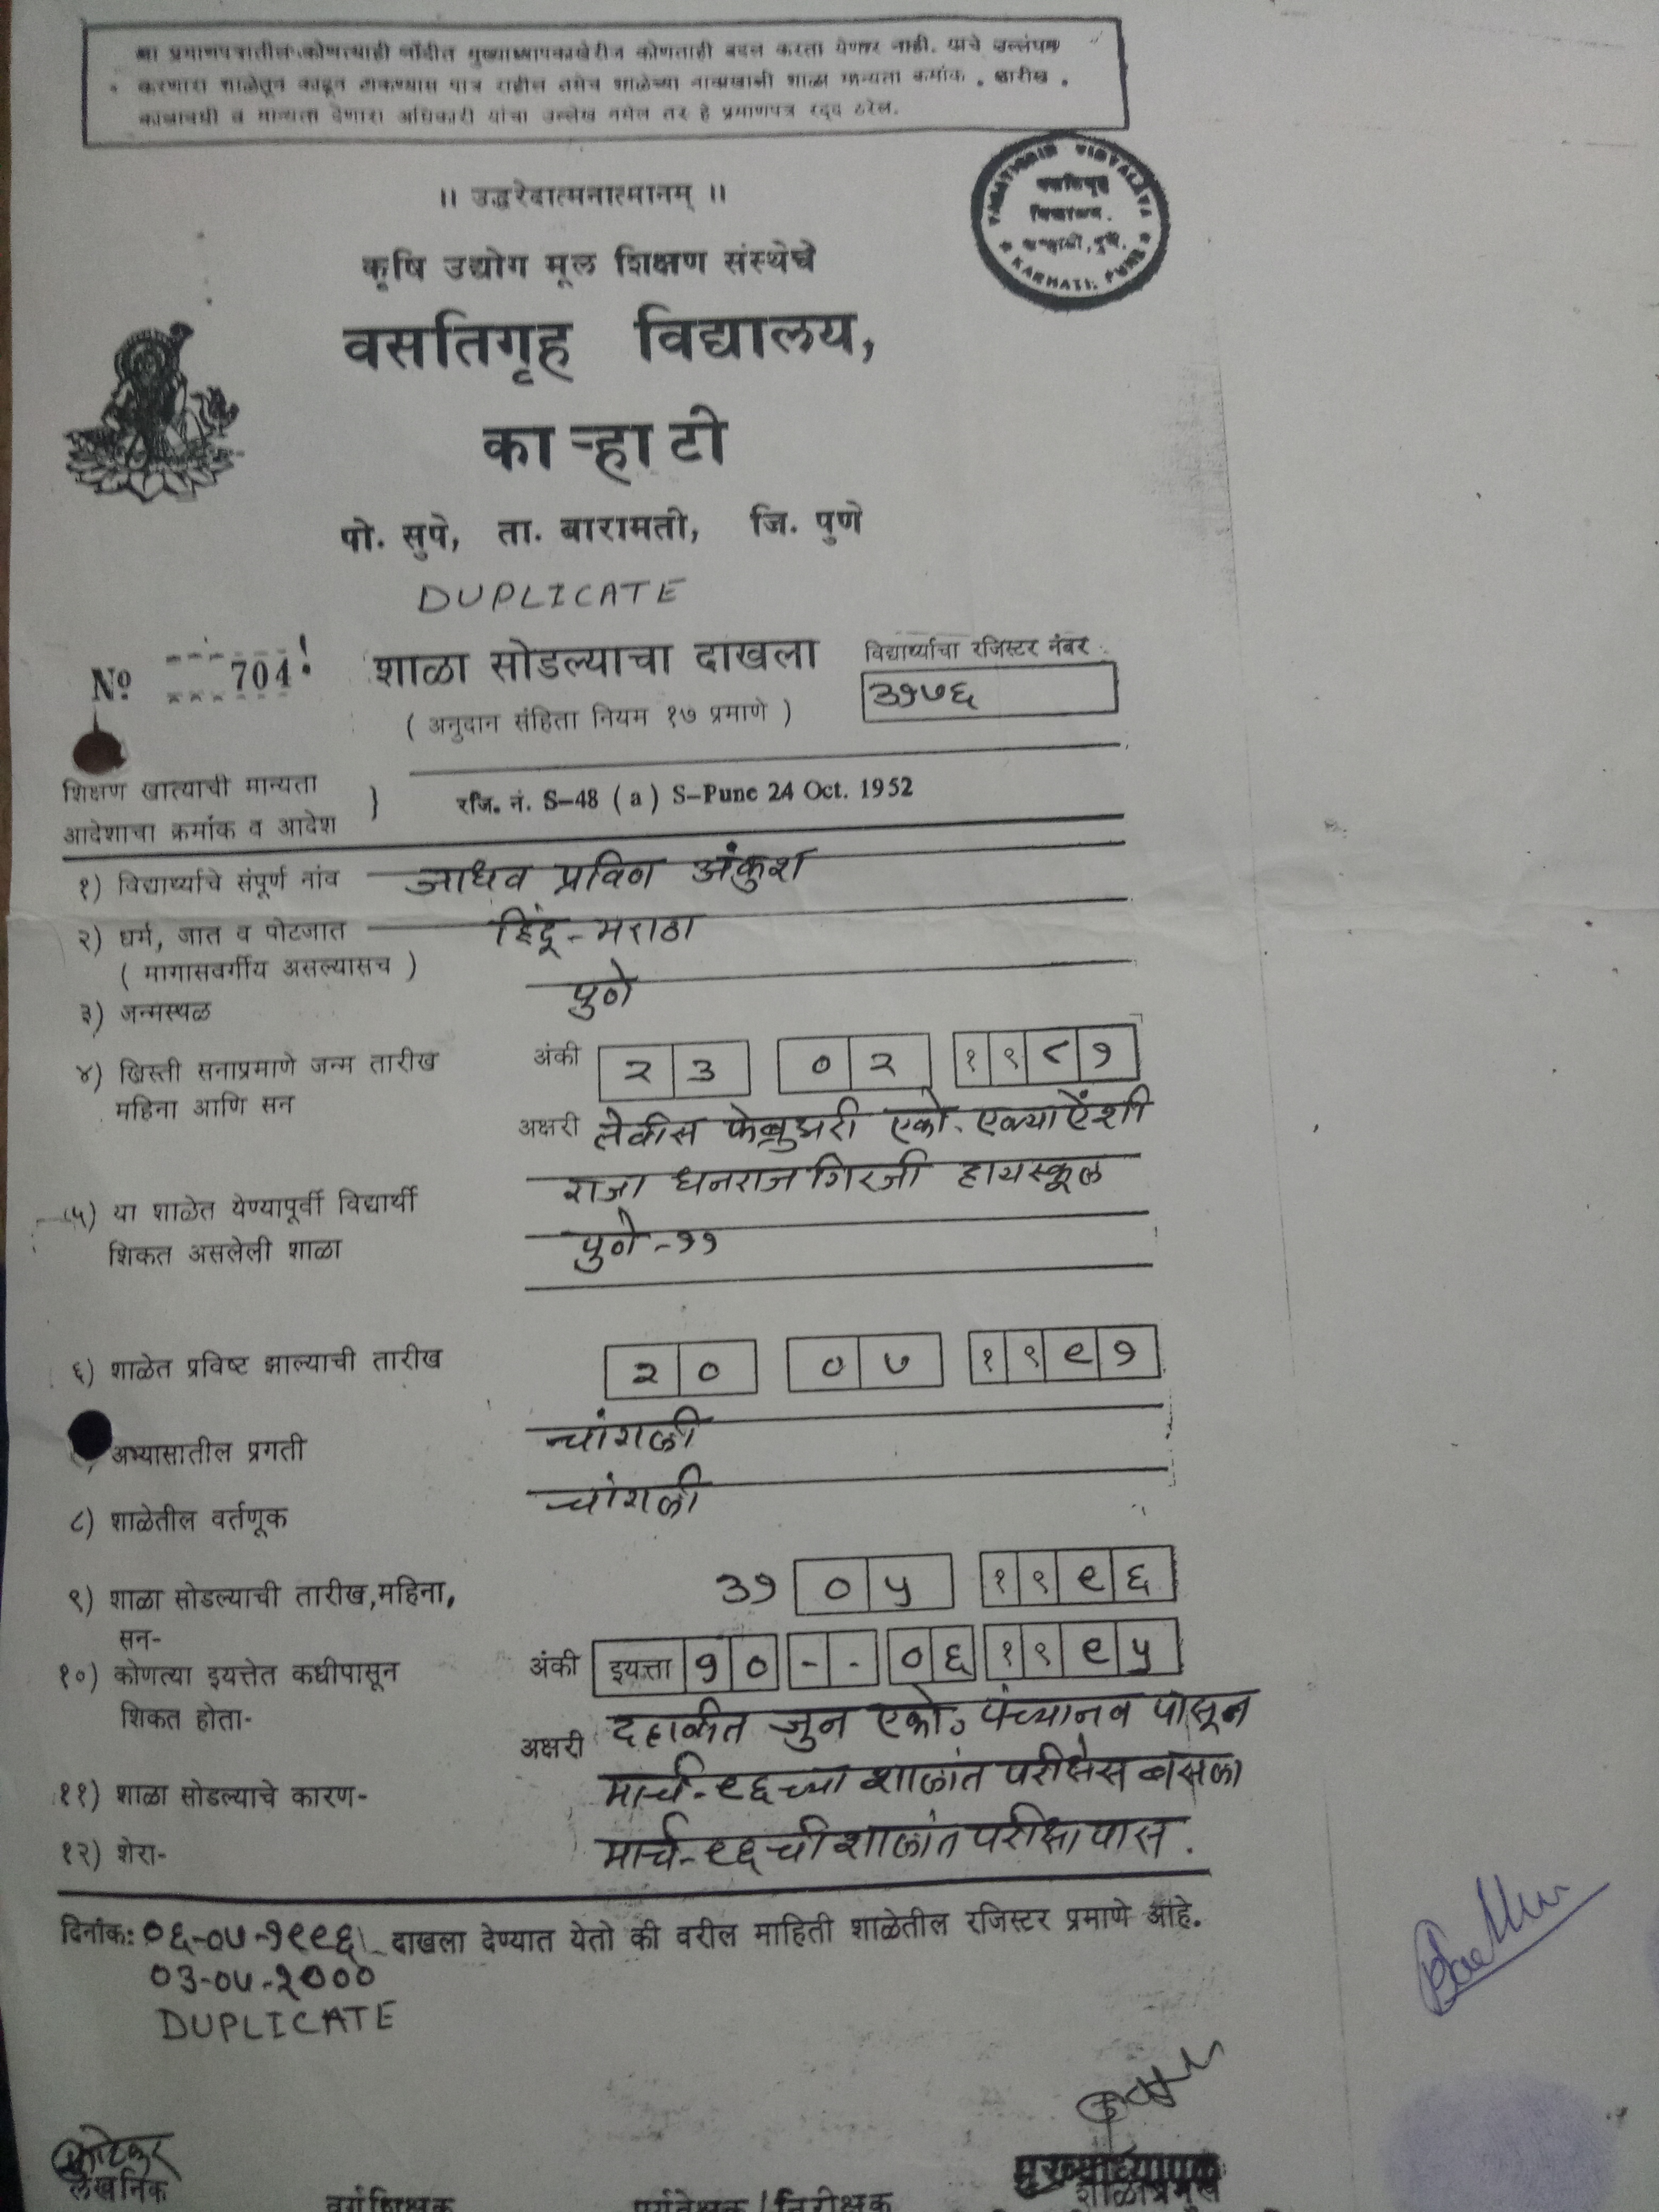 या प्रमाणपत्रातील कोणत्याही नोंदीत मुख्याध्यापकाखेरीज कोणताही बदल करता येणार नाही. याचे उल्लंघन
करणारा शाळेतून काढून टाकण्यास पात्र राहील तसेच शाळेच्या नावाखाली शाळा मान्यता क्रमांक . तारीख .
कालावधी व मान्यता देणारा अधिकारी यांचा उल्लेख नसेल तर हे प्रमाणपत्र रद्द ठरेल.
VASATIGRIH VIDYALAYA
वसतिगृह
विद्यालय.
काऱ्हाटी, पुणे.
KARHATI, PUNE
।। उद्धरेदात्मनात्मानम् ।।
कृषि उद्योग मूल शिक्षण संस्थेचे
वसतिगृह विद्यालय,
काऱ्हाटी
पो. सुपे, ता. बारामती, जि. पुणे
DUPLICATE
No 704 शाळा सोडल्याचा दाखला विद्यार्थ्याचा रजिस्टर नंबर
३१७६
( अनुदान संहिता नियम १७ प्रमाणे )
शिक्षण खात्याची मान्यता
आदेशाचा क्रमांक व आदेश } रजि. नं. S-48 ( a ) S-Pune 24 Oct. 1952
१) विद्यार्थ्याचे संपूर्ण नांव जाधव प्रविण अंकुश
२) धर्म, जात व पोटजात हिंदू - मराठा
( मागासवर्गीय असल्यासच )
३) जन्मस्थळ पुणे
४) ख्रिस्ती सनाप्रमाणे जन्म तारीख अंकी २३ ०२ १९८१
महिना आणि सन
अक्षरी तेवीस फेब्रुवारी एको. एक्याऐंशी
५) या शाळेत येण्यापूर्वी विद्यार्थी राजा धनराज गिरजी हायस्कूल
शिकत असलेली शाळा पुणे - ११
६) शाळेत प्रविष्ट झाल्याची तारीख २० ०७ १९९१
अभ्यासातील प्रगती चांगली
८) शाळेतील वर्तणूक चांगली
९) शाळा सोडल्याची तारीख,महिना, ३१ ०५ १९९६
सन-
१०) कोणत्या इयत्तेत कधीपासून अंकी इयत्ता १० - - ०६ १९९५
शिकत होता-
अक्षरी दहावीत जुन एको. पंच्यानव पासून
११) शाळा सोडल्याचे कारण- मार्च-९६ च्या शालांत परीक्षेस बसला
१२) शेरा- मार्च-९६ ची शालांत परीक्षा पास.
दिनांक: ०६-०७-१९९६ दाखला देण्यात येतो की वरील माहिती शाळेतील रजिस्टर प्रमाणे आहे.
०३-०७-२०००
DUPLICATE
लेखनिक वर्गशिक्षक पर्यवेक्षक / निरीक्षक मुख्याध्यापक
शाळाप्रमुख